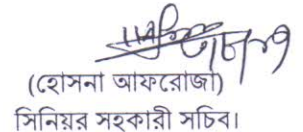 (হোসনা আফরোজা)
সিনিয়র সহকারী সচিব।